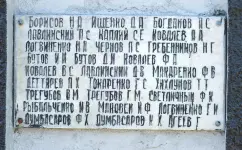 БОРИСОВ Н.Д. ИЩЕНКО Д.А. БОГДАНОВ П.С.
ЛАВЛИНСКИЙ П.С. КАПЛИЙ С.Е. КОВАЛЕВ Д.А.
ЛОГВИНЕНКО Н.А. ЧЕРНОВ П.С. ГРЕБЕННИКОВ Н.Г.
БУТОВ И.И. БУТОВ Д.И. КОВАЛЕВ Ф.А.
КОВАЛЕВ В.С. ЛАВЛИНСКИЙ Д.В. МАКАРЕНКО Ф.В.
ДЕГТЯРЕВ П. ГОНЧАРЕНКО Г.С. ТИХЛУНОВ Т.Т.
ТРЕГУБОВ О.М. ТРЕГУБОВ Г.М. СВЕТЛИЧНЫЙ Ф.Х.
РЫБАЛЬЧЕНКО И.В. МАКОВЕЙ К.Ф. ЛОГВИНЕНКО Г.И.
ДУМБАСАРОВ Ф.Х. ДУМБАСАРОВ Н.Х. АГЕЕВ Г.